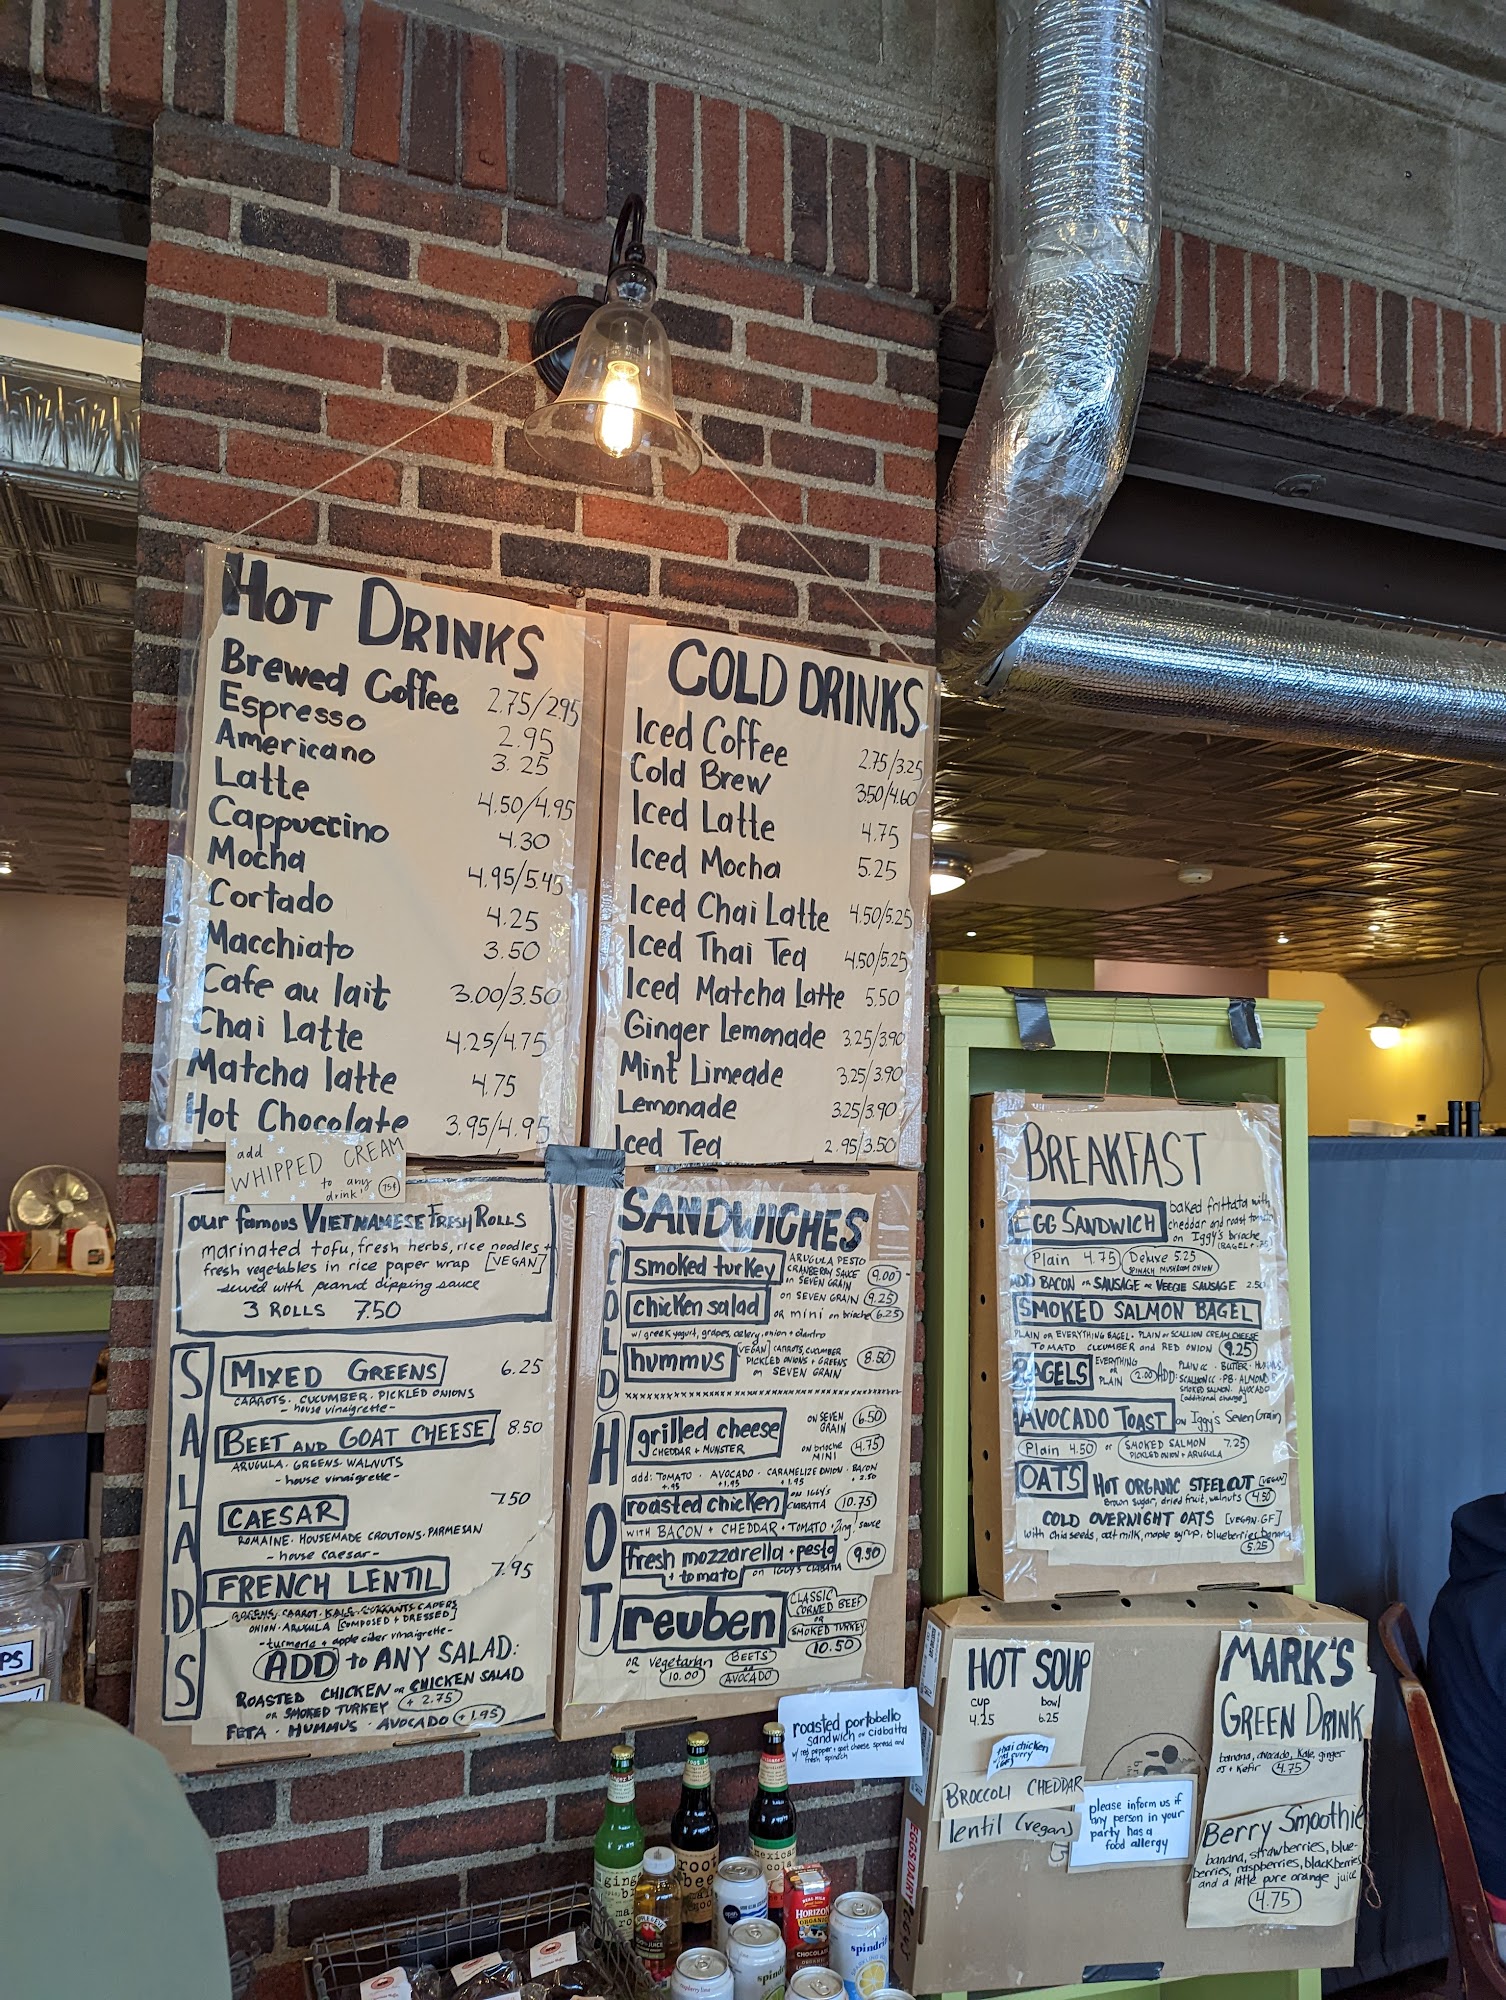 HOT DRINKS
Brewed Coffee 2.75/2.95
Espresso 2.95
Americano 3.25
Latte 4.50/4.95
Cappuccino 4.30
Mocha 4.95/5.45
Cortado 4.25
Macchiato 3.50
Cafe au lait 3.00/3.50
Chai Latte 4.25/4.75
Matcha latte 4.75
Hot Chocolate 3.95/4.95
add
WHIPPED CREAM
to any
drink! 75¢
COLD DRINKS
Iced Coffee 2.75/3.25
Cold Brew 3.50/4.60
Iced Latte 4.75
Iced Mocha 5.25
Iced Chai Latte 4.50/5.25
Iced Thai Tea 4.50/5.25
Iced Matcha Latte 5.50
Ginger Lemonade 3.25/3.90
Mint Limeade 3.25/3.90
Lemonade 3.25/3.90
Iced Tea 2.95/3.50
our famous VIETNAMESE FRESH ROLLS
marinated tofu, fresh herbs, rice noodles +
fresh vegetables in rice paper wrap [VEGAN]
served with peanut dipping sauce
3 ROLLS 7.50
SALADS
MIXED GREENS 6.25
CARROTS · CUCUMBER · PICKLED ONIONS
- house vinaigrette -
BEET AND GOAT CHEESE 8.50
ARUGULA · GREENS · WALNUTS
- house vinaigrette -
CAESAR 7.50
ROMAINE · HOUSEMADE CROUTONS · PARMESAN
- house caesar -
FRENCH LENTIL 7.95
GREENS · CARROT · KALE · CURRANTS CAPERS
ONION · ARUGULA [COMPOSED + DRESSED]
- turmeric + apple cider vinaigrette -
ADD to ANY SALAD:
ROASTED CHICKEN or CHICKEN SALAD
or SMOKED TURKEY + 2.75
FETA · HUMMUS · AVOCADO + 1.95
SANDWICHES
COLD
smoked turkey ARUGULA PESTO
CRANBERRY SAUCE
on SEVEN GRAIN 9.00
chicken salad on SEVEN GRAIN 9.25
OR mini on brioche 6.25
w/ greek yogurt, grapes, celery, onion + cilantro
hummus [VEGAN] CARROTS, CUCUMBER
PICKLED ONIONS + GREENS
on SEVEN GRAIN 8.50
HOT
grilled cheese ON SEVEN
GRAIN 6.50
CHEDDAR + MUNSTER on brioche
MINI 4.75
add: TOMATO · AVOCADO · CARAMELIZE ONION · BACON
+.95 +1.95 +1.95 +2.50
roasted chicken ON IGGY'S
CIABATTA 10.75
WITH BACON + CHEDDAR + TOMATO + Zing! sauce
fresh mozzarella + pesto
+ tomato on IGGY'S CIABATTA 9.50
reuben CLASSIC
CORNED BEEF
OR
SMOKED TURKEY
10.50
OR vegetarian BEETS
10.00 OR
AVOCADO
roasted portobello
sandwich on ciabatta
w/ red pepper + goat cheese spread and
fresh spinach
BREAKFAST
EGG SANDWICH baked frittata with
cheddar and roast tomato
on Iggy's brioche
Plain 4.75 Deluxe 5.25
SPINACH MUSHROOM ONION
ADD BACON or SAUSAGE or VEGGIE SAUSAGE 2.50
SMOKED SALMON BAGEL
PLAIN OR EVERYTHING BAGEL · PLAIN or SCALLION CREAM CHEESE
TOMATO CUCUMBER and RED ONION 9.25
BAGELS EVERYTHING
OR
PLAIN 2.00 ADD: PLAIN CC · BUTTER · HUMMUS
SCALLION CC · PB · ALMOND B
SMOKED SALMON · AVOCADO
[additional charge]
AVOCADO TOAST on Iggy's Seven Grain
Plain 4.50 or SMOKED SALMON 7.25
PICKLED ONION + ARUGULA
OATS HOT ORGANIC STEELCUT [VEGAN]
Brown sugar, dried fruit, walnuts 4.50
COLD OVERNIGHT OATS [VEGAN·GF]
with chia seeds, oat milk, maple syrup, blueberries, banana
5.25
HOT SOUP
cup bowl
4.25 6.25
thai chicken
red curry
BROCCOLI CHEDDAR
lentil (vegan)
please inform us if
any person in your
party has a
food allergy
MARK'S
GREEN DRINK
banana, avocado, kale, ginger
OJ + Kefir 4.75
Berry Smoothie
banana, strawberries, blue-
berries, raspberries, blackberries
and a little pure orange juice
4.75
HORIZON
ORGANIC
CHOCOLATE
spindrift